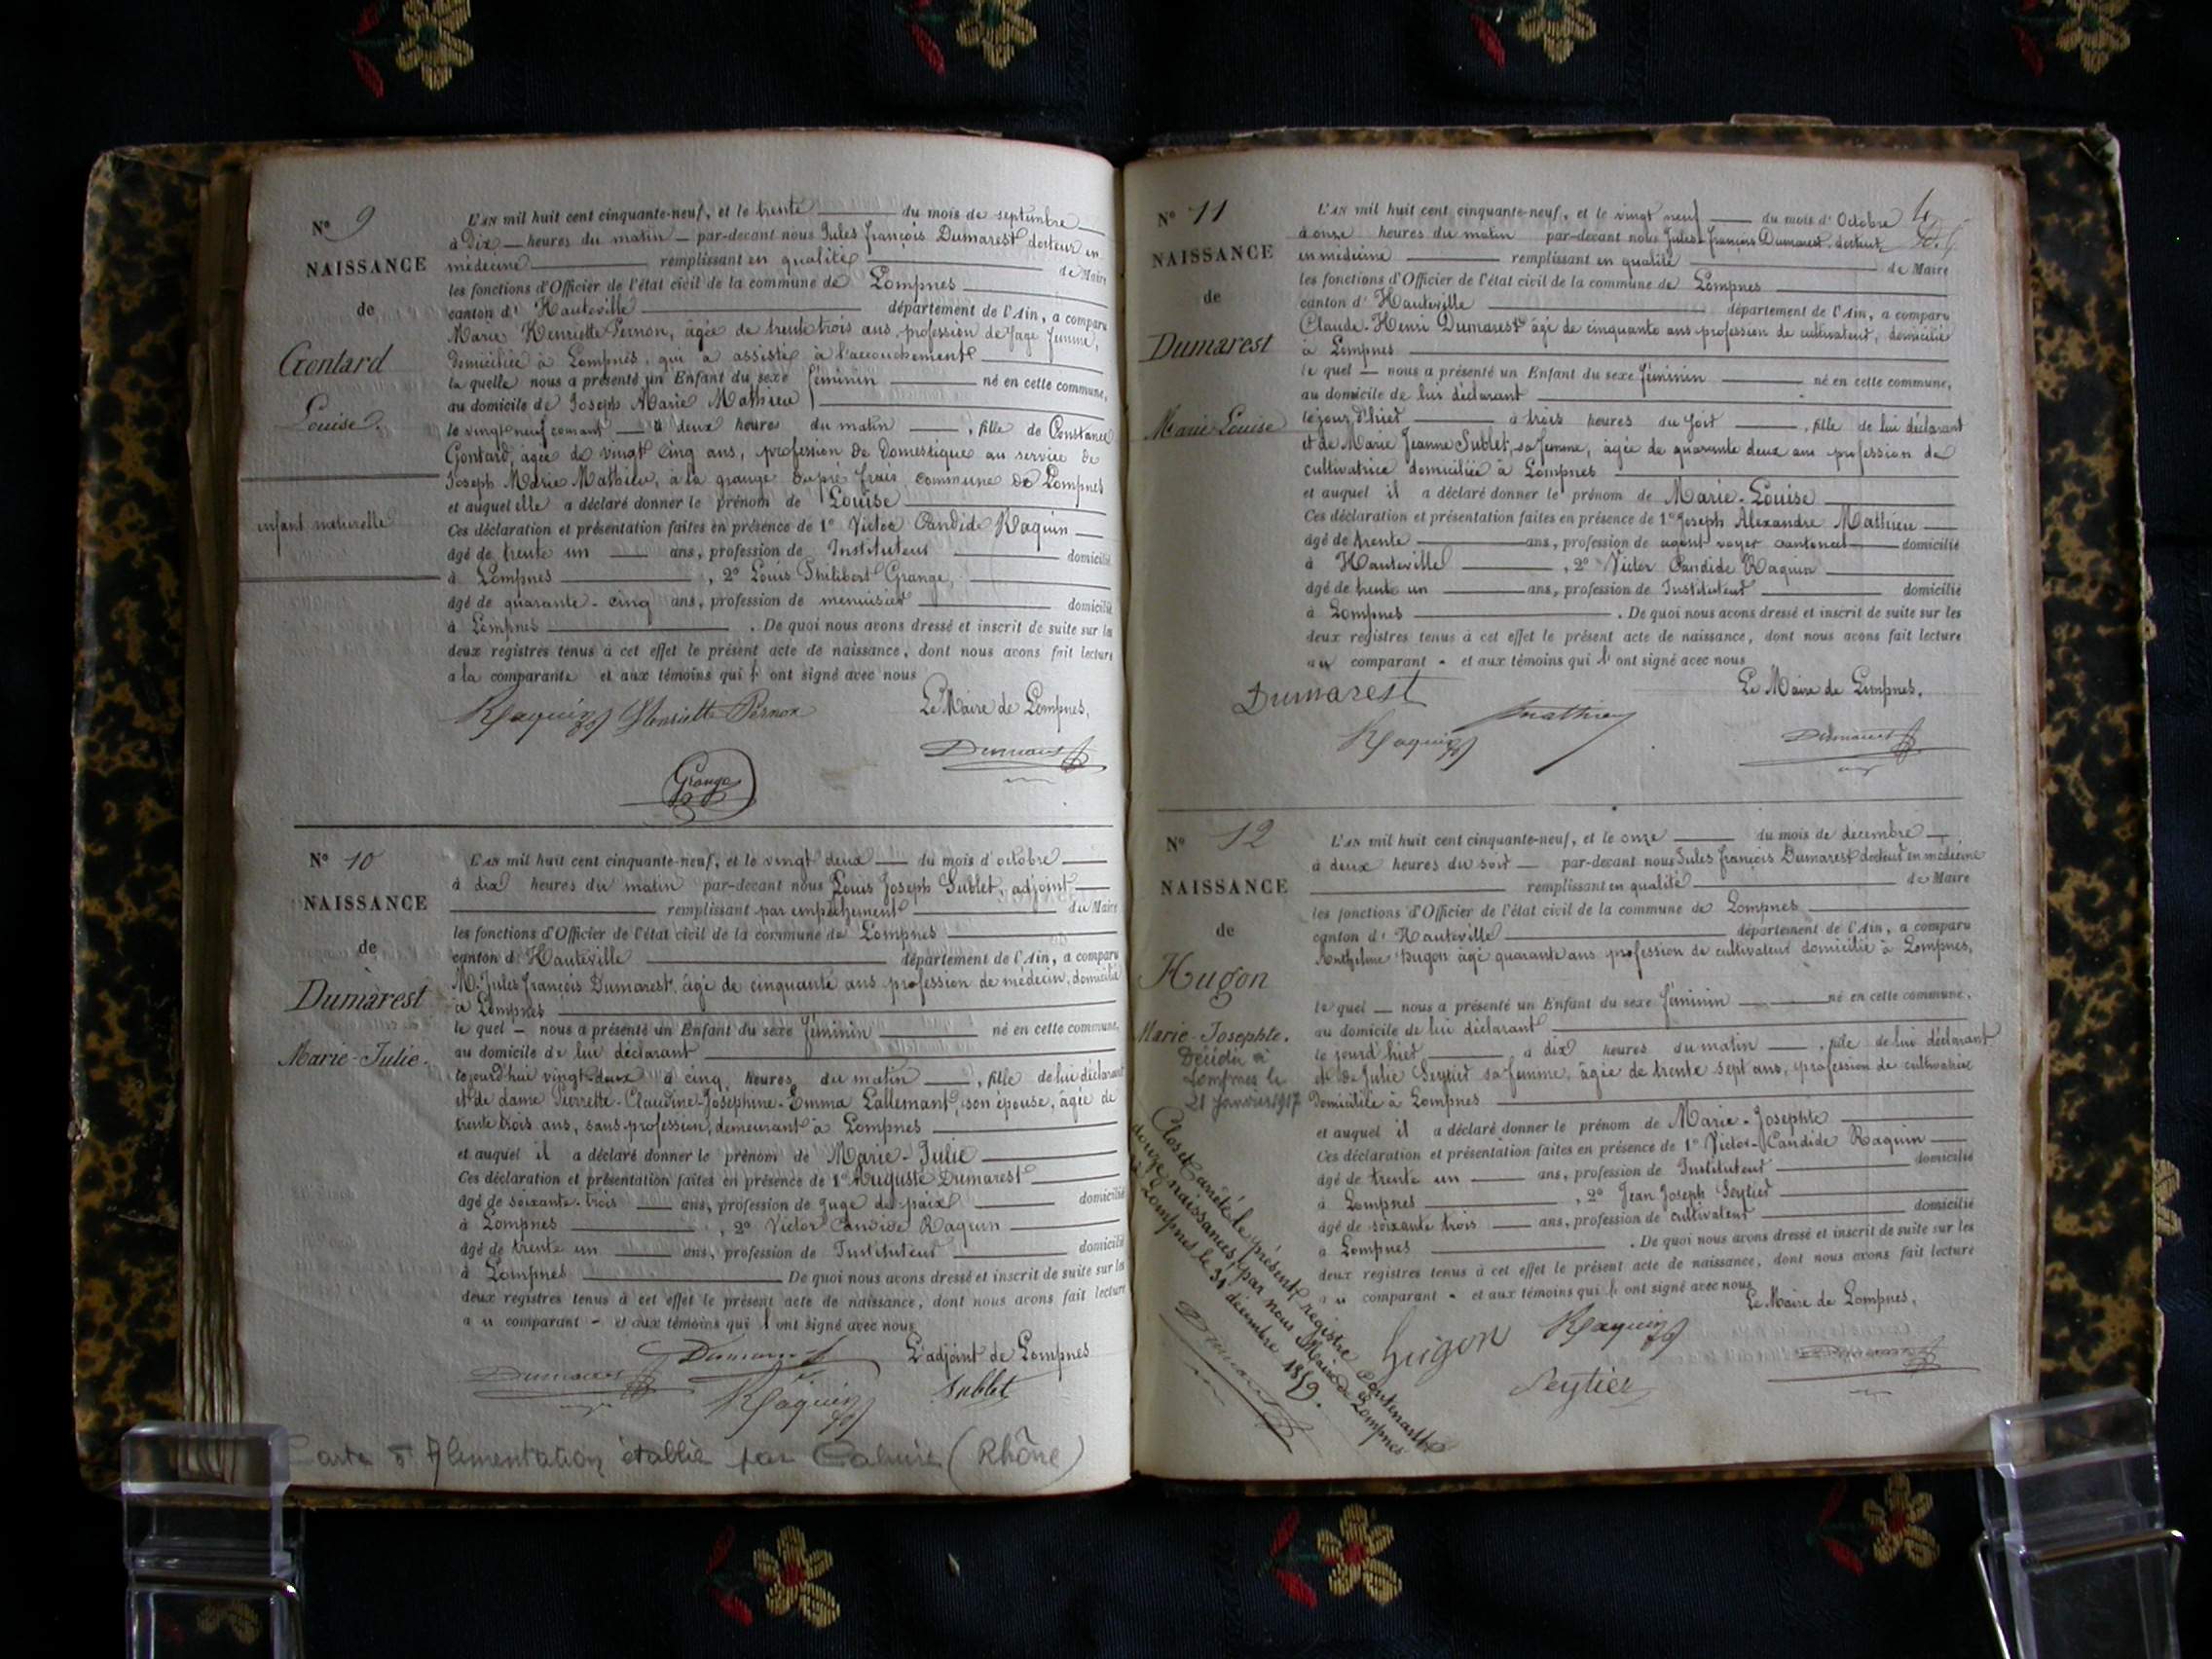 N° 9
NAISSANCE
de
Gontard
Louise.
enfant naturelle
L'AN mil huit cent cinquante-neuf, et le trente du mois de septembre
à Dix heures du matin par-devant nous Jules françois Dumarest docteur en
médecine remplissant en qualité de Maire
les fonctions d'Officier de l'état civil de la commune de Lompnes
canton d' Hauteville département de l'Ain, a comparu
Marie Henriette Pernon, âgée de trente trois ans profession de sage femme,
domiciliée à Lompnes, qui a assistée à l'accouchement
la quelle nous a présenté un Enfant du sexe féminin né en cette commune,
au domicile de Joseph Marie Mathieu
le vingt neuf courant à deux heures du matin , fille de Constance
Gontard, agée de vingt cinq ans, profession de Domestique au service de
Joseph Marie Mathieu, à la grange commune de Lompnes
et auquel elle a déclaré donner le prénom de Louise
Ces déclaration et présentation faites en présence de 1° Victor Candide Raquin
âgé de trente un ans, profession de Instituteur domicilié
à Lompnes , 2° Louis Philibert Grange,
âgé de quarante-cinq ans, profession de menuisier domicilié
à Lompnes . De quoi nous avons dressé et inscrit de suite sur les
deux registres tenus à cet effet le présent acte de naissance, dont nous avons fait lecture
a la comparante et aux témoins qui ont signé avec nous
Le Maire de Lompnes,
Raquin Henriette Pernon
Dumarest
Grange
N° 10
NAISSANCE
de
Dumarest
Marie-Julie.
L'AN mil huit cent cinquante-neuf, et le vingt deux du mois d'octobre
à dix heures du matin par-devant nous Louis Joseph Sublet, adjoint
remplissant par empêchement du Maire
les fonctions d'Officier de l'état civil de la commune de Lompnes
canton d' Hauteville département de l'Ain, a comparu
M. Jules françois Dumarest, âgé de cinquante ans profession de médecin, domicilié
à Lompnes
le quel nous a présenté un Enfant du sexe féminin né en cette commune,
au domicile de lui déclarant
cejourd'hui vingt-deux à cinq heures du matin , fille de lui déclarant
et de dame Pierrette-Claudine-Joséphine-Emma Lallemant, son épouse, âgée de
trente trois ans, sans profession, demeurant à Lompnes
et auquel il a déclaré donner le prénom de Marie-Julie
Ces déclaration et présentation faites en présence de 1° Auguste Dumarest
âgé de soixante-trois ans, profession de Juge de paix domicilié
à Lompnes , 2° Victor Candide Raquin
âgé de trente un ans, profession de Instituteur domicilié
à Lompnes De quoi nous avons dressé et inscrit de suite sur les
deux registres tenus à cet effet le présent acte de naissance, dont nous avons fait lecture
a u comparant et aux témoins qui ont signé avec nous
L'adjoint de Lompnes
Dumarest Dumarest
Raquin Sublet
Carte d'Alimentation établie par Caluire (Rhône)
N° 11
NAISSANCE
de
Dumarest
Marie-Louise
L'AN mil huit cent cinquante-neuf, et le vingt neuf du mois d' Octobre
à onze heures du matin par-devant nous Jules-françois Dumarest, docteur
en médecine remplissant en qualité de Maire
les fonctions d'Officier de l'état civil de la commune de Lompnes
canton d' Hauteville département de l'Ain, a comparu
Claude-Henri Dumarest âgé de cinquante ans profession de cultivateur, domicilié
à Lompnes
le quel nous a présenté un Enfant du sexe féminin né en cette commune,
au domicile de lui déclarant
le jour d'hier à trois heures du soir , fille de lui déclarant
et de Marie Jeanne Sublet, sa femme, âgée de quarante deux ans profession de
cultivatrice domiciliée à Lompnes
et auquel il a déclaré donner le prénom de Marie-Louise
Ces déclaration et présentation faites en présence de 1° Joseph Alexandre Mathieu
âgé de trente ans, profession de agent voyer cantonal domicilié
à Hauteville , 2° Victor Candide Raquin
âgé de trente un ans, profession de Instituteur domicilié
à Lompnes . De quoi nous avons dressé et inscrit de suite sur les
deux registres tenus à cet effet le présent acte de naissance, dont nous avons fait lecture
au comparant et aux témoins qui ont signé avec nous
Le Maire de Lompnes,
Dumarest Mathieu
Raquin Dumarest
N° 12
NAISSANCE
de
Hugon
Marie-Josephte.
Décédée à
Lompnes le
21 Janvier 1917
L'AN mil huit cent cinquante-neuf, et le onze du mois de décembre
à deux heures du soir par-devant nous Jules françois Dumarest docteur en médecine
remplissant en qualité de Maire
les fonctions d'Officier de l'état civil de la commune de Lompnes
canton d' Hauteville département de l'Ain, a comparu
Anthelme Hugon âgé quarante ans profession de cultivateur domicilié à Lompnes,
le quel nous a présenté un Enfant du sexe féminin né en cette commune,
au domicile de lui déclarant
le jour d'hier à dix heures du matin , fille de lui déclarant
et de Julie Seytier sa femme, âgée de trente sept ans, profession de cultivatrice
domiciliée à Lompnes
et auquel il a déclaré donner le prénom de Marie-Josephte
Ces déclaration et présentation faites en présence de 1° Victor-Candide Raquin
âgé de trente un ans, profession de Instituteur domicilié
à Lompnes , 2° Jean Joseph Seytier
âgé de soixante trois ans, profession de cultivateur domicilié
à Lompnes . De quoi nous avons dressé et inscrit de suite sur les
deux registres tenus à cet effet le présent acte de naissance, dont nous avons fait lecture
a u comparant et aux témoins qui ont signé avec nous
Le Maire de Lompnes,
Hugon Raquin
Seytier Dumarest
Clos et arrêté le présent registre contenant
douze naissances, par nous Maire de Lompnes
à Lompnes le 31 décembre 1859.
Dumarest